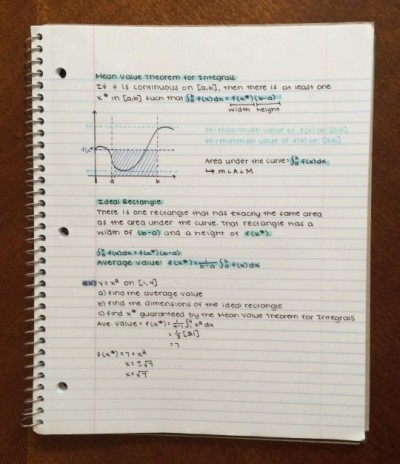 Mean Value Theorem for Integrals
If f is continuous on [a,b], then there is at least one
x* in [a,b] such that ∫ₐᵇ f(x)dx = f(x*)(b-a)
width height
M=maximum value of f(x) on [a,b]
m=minimum value of f(x) on [a,b]
f(x*)
Area under the curve=∫ₐᵇ f(x)dx
↳ m≤A≤M
a b
Ideal Rectangle
There is one rectangle that has exactly the same area
as the area under the curve. That rectangle has a
width of (b-a) and a height of f(x*).
∫ₐᵇ f(x)dx = f(x*)(b-a)
Average value: f(x*) = 1/(b-a) ∫ₐᵇ f(x)dx
y = x² on [1,4]
a) find the average value
b) find the dimensions of the ideal rectangle
c) find x* guaranteed by the Mean Value Theorem for Integrals
Ave. value = f(x*) = 1/(4-1) ∫₁⁴ x² dx
= 1/3 [21]
= 7
f(x*) = 7 = x²
x = ±√7
x = √7